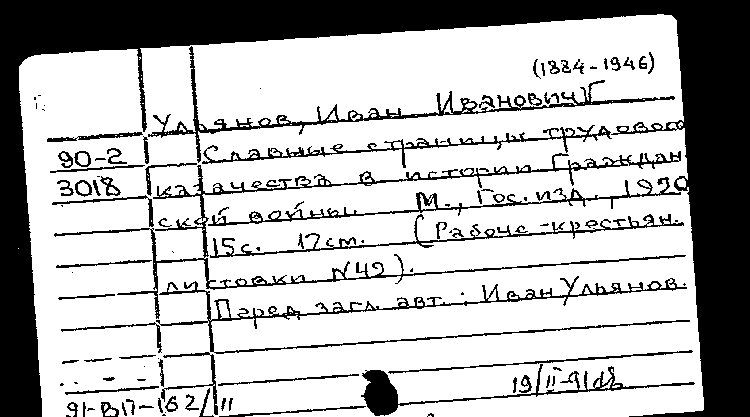 (1884-1946)
Ульянов, Иван Иванович
90-2 Славные страницы трудового
3018 казачества в истории Граждан
ской войны. М., Гос. изд., 1920
15с. 17см. (Рабоче-крестьян.
листовки №42).
Перед загл. авт.: Иван Ульянов.
19/II-91
91-ВП-162/II